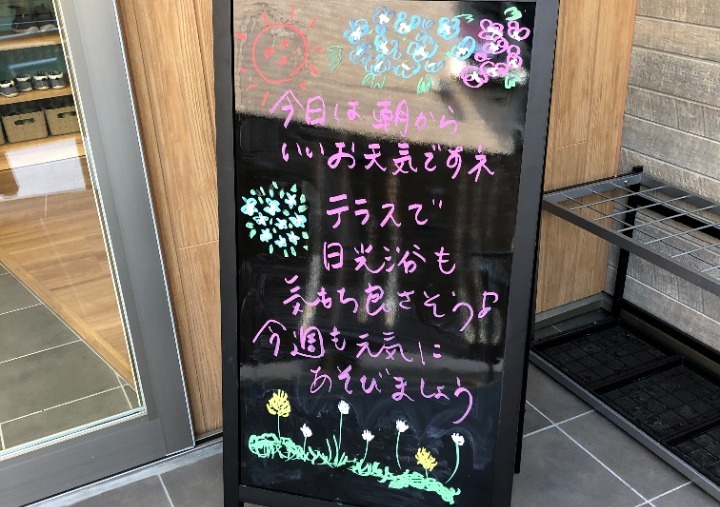 今日は朝から
いいお天気ですネ
テラスで
日光浴も
気もち良さそうよ
今週も元気に
あそびましょう